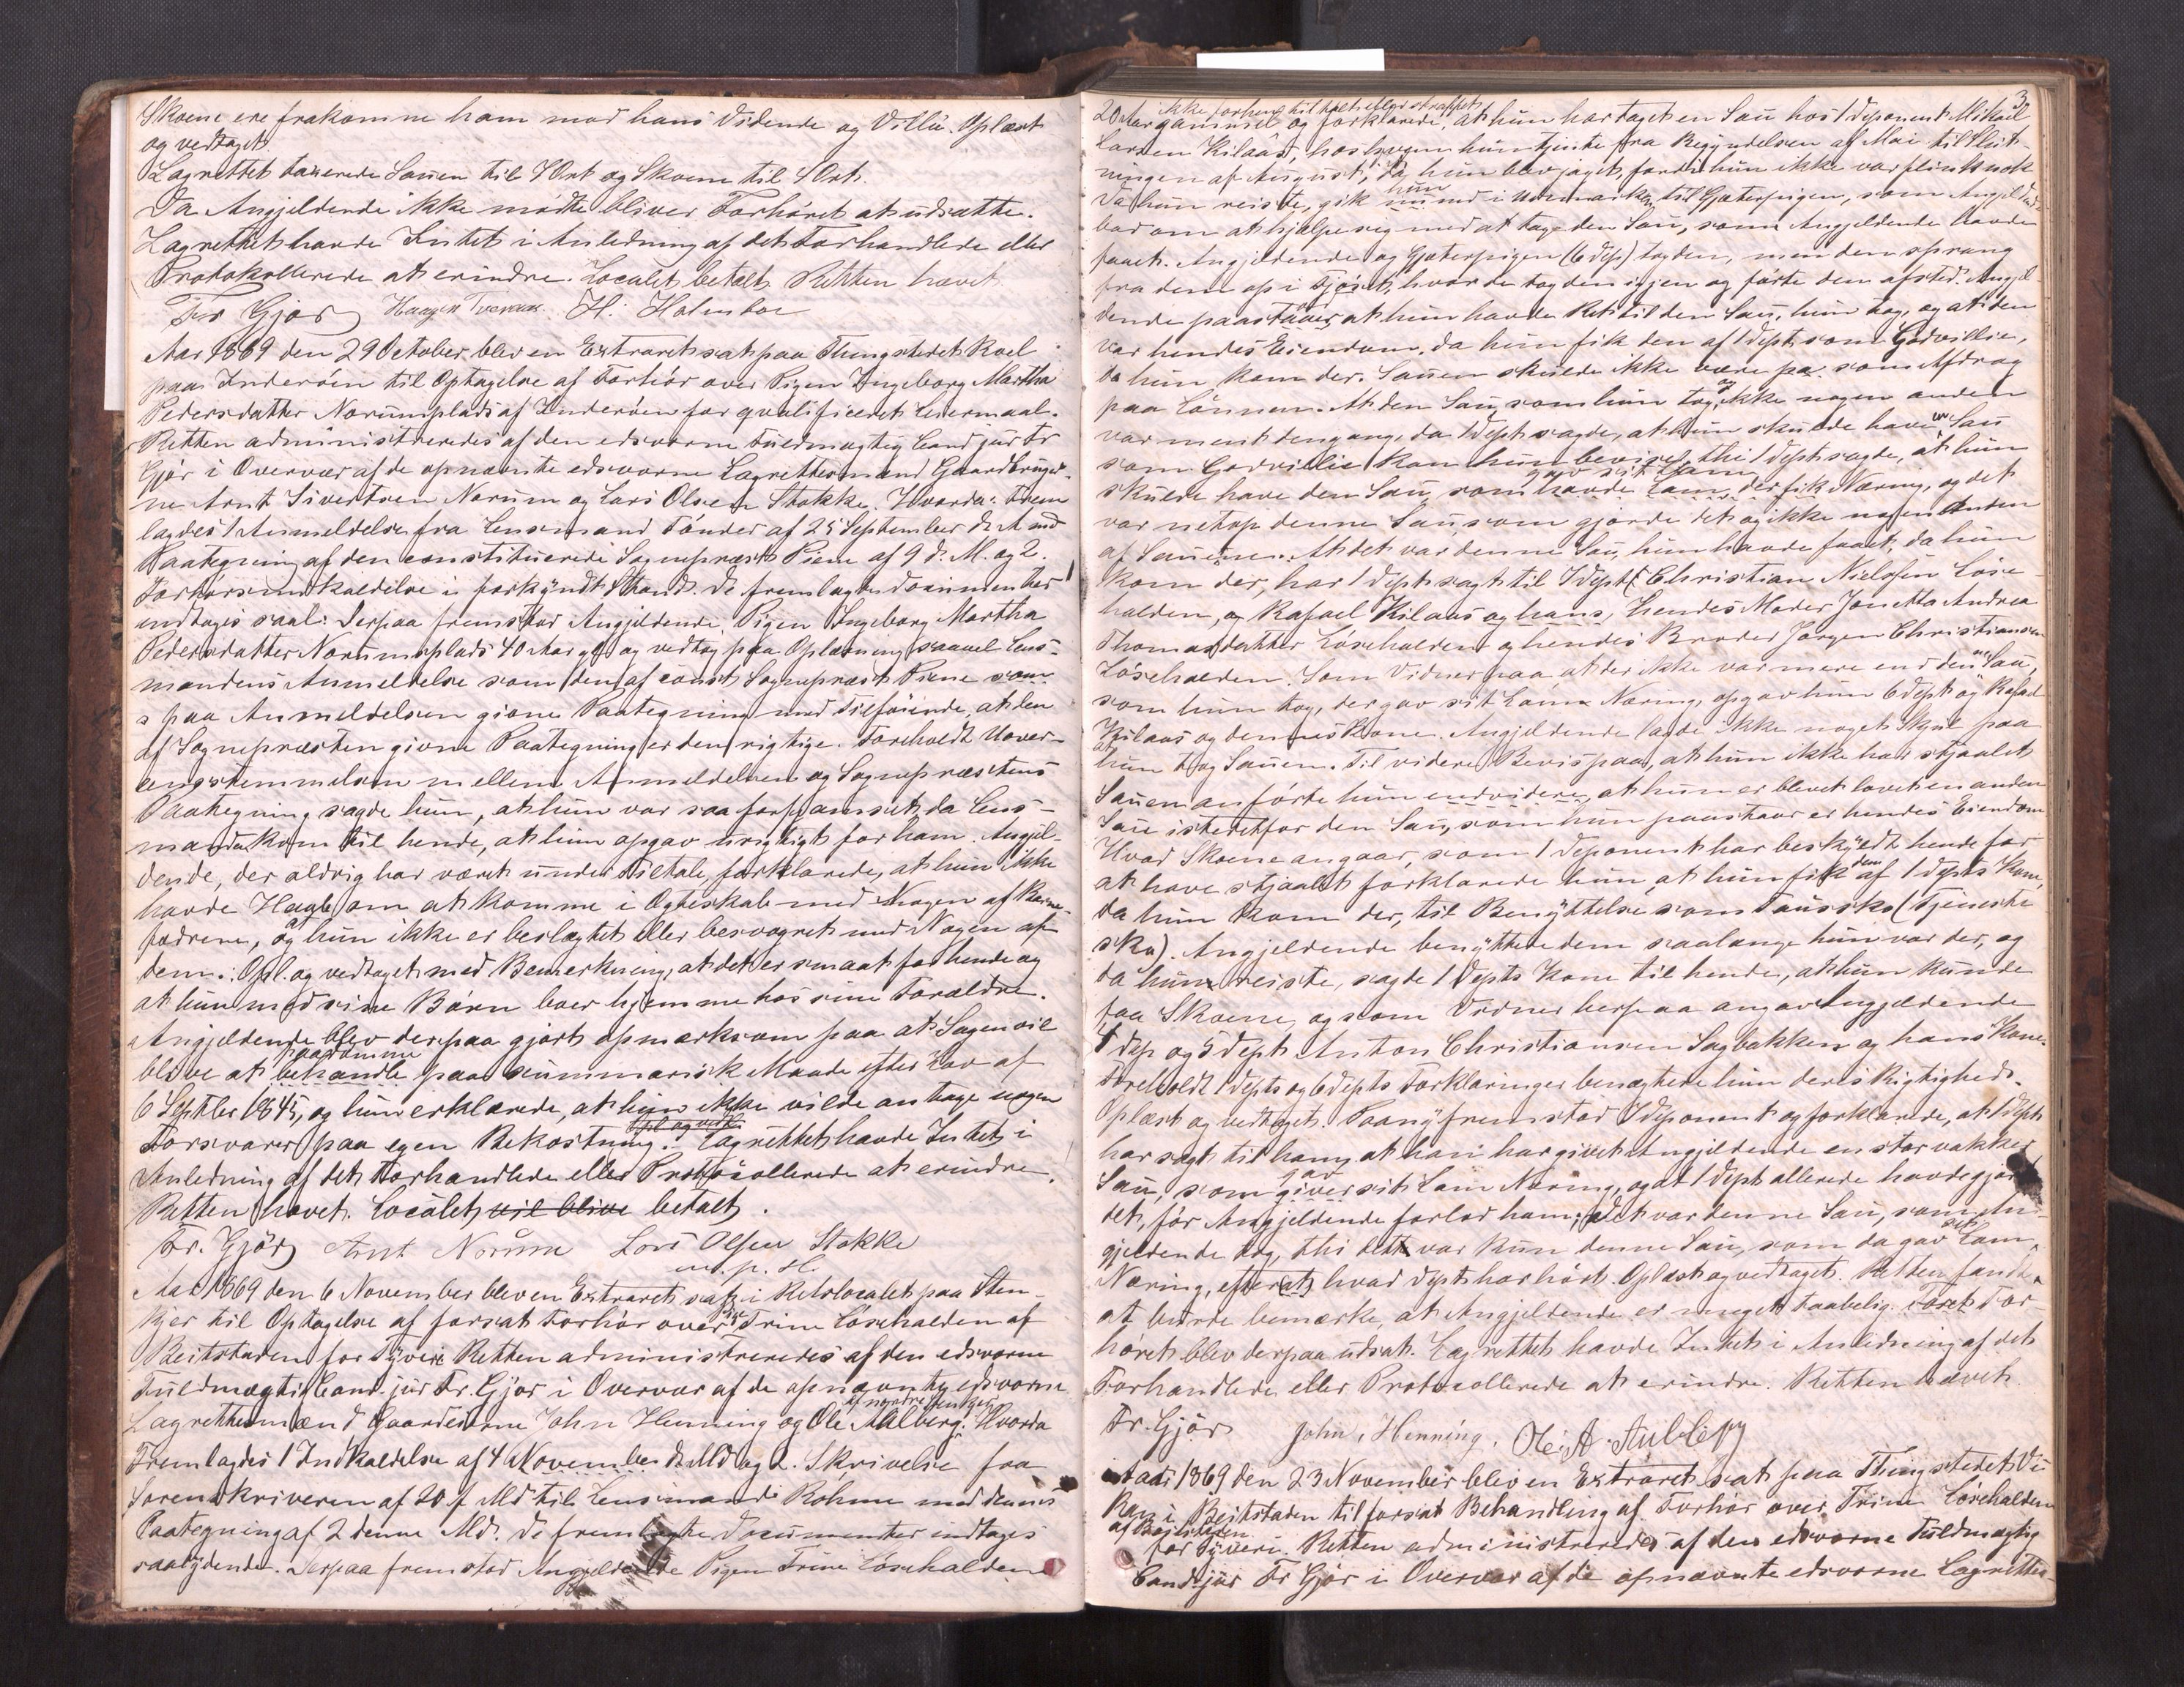 Skoene ere frakomne ham mod hans Vidende og Villie. Oplæst
og vedtaget.
Lagrettet taxerede Sauen til 7 Ort og Skoene til 4 Ort.
Da Angjeldende ikke mødte bliver Forhøret at udsætte.
Lagrettet havde Intet i Anledning af det Forhandlede eller
Protokollerede at erindre. Localet betalt. Retten hævet
Fr Gjør H. Holmboe
Aar 1869 den 29 October blev en Extraret sat paa Thingstedet Roel
paa Inderøen til Optagelse af Forhør over Pigen Ingeborg Martha
Pedersdatter Norumsplads af Inderøen for qvalificeret Leiermaal.
Retten administreredes af den edsvorne Fuldmægtig Cand jur Fr
Gjør i Overvær af de opnævnte edsvorne Lagrettesmænd Gaardbruger-
ne Arnt Sivertsen Norum og Lars Olsen Stokke. Hvorda: Frem
lagdes 1 Anmeldelse fra Lensmand Tønder af 25 September d. A. med
Paategning af den constituerede Sognepræst Piene af 9 d. M. og 2.
Forhørsindkaldelse i forkyndt Stand. De fremlagte documenter
indtages saal: Derpaa fremstod Angjeldende Pigen Ingeborg Martha
Pedersdatter Norumsplads 40 Aar gl og vedtog paa Oplæsning saavel Lens-
mandens Anmeldelse som den af const Sognepræst Piene som
paa Anmeldelsen givne Paategning med Tilføiende, at den
af Sognepræsten givne Paategning er den rigtige. Foreholdt Uover-
ensstemmelsen mellem Anmeldelsen og Sognepræstens
Paategning sagde hun, at hun var saa forfjamset, da Lens-
manden kom til hende, at hun opgav urigtigt for ham. Angjel-
dende, der aldrig har været under Tiltale, forklarede, at hun ikke
havde Haab om at komme i Ægteskab med Nogen af Barne-
fædrene, og at hun ikke er beslægtet eller besvogret med Nogen af
dem. Opl. og vedtaget med Bemerkning, at det er smaat for hende og
at hun med sine Børn boer hjemme hos sine Forældre.
Angjeldende blev derpaa gjort opmærksom paa at Sagen vil
paadømme
blive at behandle paa summarisk Maade efter Lov af
6 Septbr 1845, og hun erklærede, at hun ikke vilde antage nogen
Opl og vedt
Forsvarer paa egen Bekostning. Lagrettet havde Intet i
Anledning af det Forhandlede eller Protocollerede at erindre.
Retten hævet. Localet vil blive betalt.
Fr. Gjør Arnt Norum Lars Olsen Stokke
m. p. P.
Aar 1869 den 6 November blev en Extraret sat i Retslocalet paa Sten-
kjer til Optagelse af forsat Forhør over Trine Løsehalden af
Beitstaden for Tyveri Retten administreredes af den edsvorne
Fuldmægtig Cand. jur Fr. Gjør i Overvær af de opnævnte edsvorne
Lagrettemænd Gaardeierne John Henning og Ole Aalberg. Hvorda
Fremlagdes 1 Indkaldelse af 4 November d. Md og 2. Skrivelse fra
Sorenskriveren af 20 f Md til Lensmand Rohme med dennes
Paategning af 2 denne Md. De fremlagte Documenter indtages
saalydende. Derpaa fremstod Angjeldende Pigen Trine Løsehalden
3
ikke forhen tiltalt eller straffet
20 Aar gammel og forklarede, at hun har taget en Sau hos 1 deponent Mikael
Larsen Kilaas, hos hvem hun tjente fra Begyndelsen af Mai til Slut-
ningen af August, da hun blev jaget, fordi hun ikke var flink nok
hun
Da hun reiste, gik nu ned i Udmarken til Gjæterpigen, som Angjeldende
bad om at hjælpe sig med at tage den Sau, som Angjeldende havde
faaet. Angjeldende og Gjæterpigen (6 dep) tog den, men den sprang
fra dem op i Fjøset, hvor de tog den igjen og førte den afsted. Angjel-
dende paastaaer, at hun havde Ret til den Sau, hun tog, og at den
var hendes Eiendom, da hun fik den af 1 dept som Godvillie,
da hun kom der. Sauen skulde ikke være pa som Afdrag
paa Lønnen. At den Sau, som hun tog, og ikke nogen anden
var ment dengang, da 1 dept sagde, at hun skulde have en Sau
som Godvillie kan hun bevise, thi 1 dept sagde, at hun
gav sit Lam
skulde have den Sau, som havde Lam, der fik Næring, og det
var netop denne Sau, som gjorde det og ikke nogen Anden
af Sauerne. At det var denne Sau, hun havde faaet, da hun
kom der, har 1 dept sagt til 7 dept (Christian Nielssen Løse-
halden, og Rafael Kilaas og hans, hendes Moder Jonetta Andrea
Thomasdatter Løsehalden og hendes Broder Jørgen Christiansen
Løsehalden. Som Vidner paa, at der ikke var mere end den ene Sau,
som hun tog, der gav sit Lam Næring, opgav hun 6 dept og Rafael
Kilaas og dennes Kone. Angjeldende lagde ikke noget Skjul paa
at
hun tog Sauen. Til videre Bevis paa, at hun ikke har stjaalet
Sauen anførte hun endvidere, at hun er blevet lovet en anden
Sau istedetfor den Sau, som hun paastaar er hendes Eiendom
Hvad Skoene angaar, som 1 deponent har beskyldt hende for
at have stjaalet forklarede hun, at hun fik dem af 1 depts Kone,
da hun kom der, til Benyttelse som Tausko (Tjeneste
sko). Angjeldende benyttede dem saalænge hun var der, og
da hun reiste, sagde 1 depts Kone til hende, at hun kunde
faa Skoene, og som Vidner herpaa angav Angjeldende
4 dep og 5 dept Anton Christiansen Sagbakken og hans Kone.
Foreholdt 1 depts og 6 depts Forklaringer benægtede hun deres Rigtighed.
Oplæst og vedtaget. Paany fremstod 7 deponent og forklarede, at 1 dept
har sagt til ham, at han har givet Angjeldende en stor vakker
gav
Sau, som giver sit Lam Næring, og at 1 dept allerede havde gjort
det, før Angjeldende forlod ham; at det var denne Sau, som An-
gjeldende tog, thi det var kun denne Sau, som da gav sit Lam
Næring, efter (at) hvad dept har hørt. Oplæst og vedtaget. Retten fandt
at burde bemærke, at Angjeldende er meget taabelig. Foret For-
høret blev derpaa udsat. Lagrettet havde Intet i Anledning af det
Forhandlede eller Protocollerede at erindre. Retten hævet.
Fr. Gjør John Henning. Ole A. Aalberg
Aar 1869 den 23 November blev en Extraret sat paa Thingstedet Vi
i Beitstaden til forsat Behandling af Forhør over Trine Løsehalden
af Beitstaden
for Tyveri. Retten administreredes af den edsvorne Fuldmægtig
Cand. jur Fr Gjør i Overvær af de opnævnte edsvorne Lagrettes-